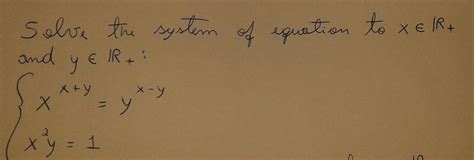 Solve the system of equation to x ∈ ℝ₊
and y ∈ ℝ₊ :
{ x^{x+y} = y^{x-y}
x²y = 1